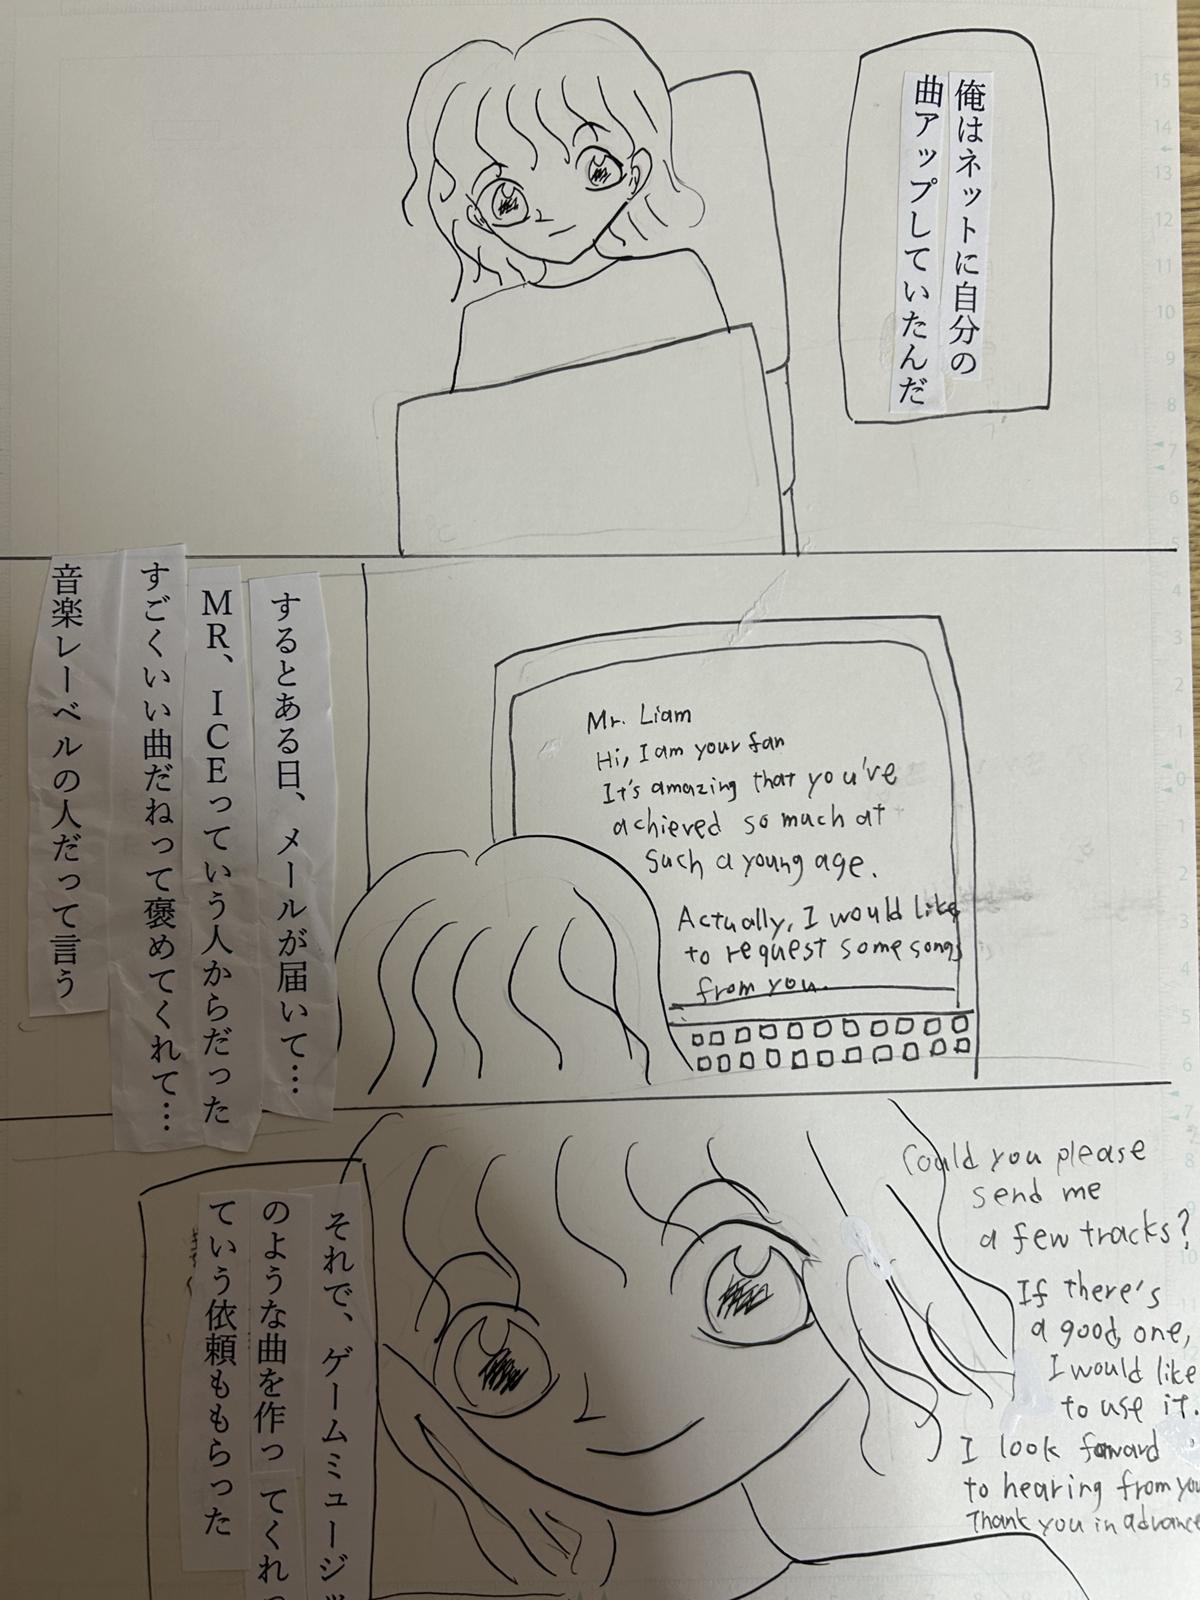 俺はネットに自分の
曲アップしていたんだ
Mr. Liam
Hi, I am your fan
It's amazing that you've
achieved so much at
such a young age.
Actually, I would like
to request some songs
from you.
するとある日、メールが届いて…
MR、ICEっていう人からだった
すごくいい曲だねって褒めてくれて…
音楽レーベルの人だって言う
Could you please
send me
a few tracks?
If there's
a good one,
I would like
to use it.
I look forward
to hearing from you
Thank you in advance
それで、ゲームミュージッ
のような曲を作ってくれ
ていう依頼ももらった